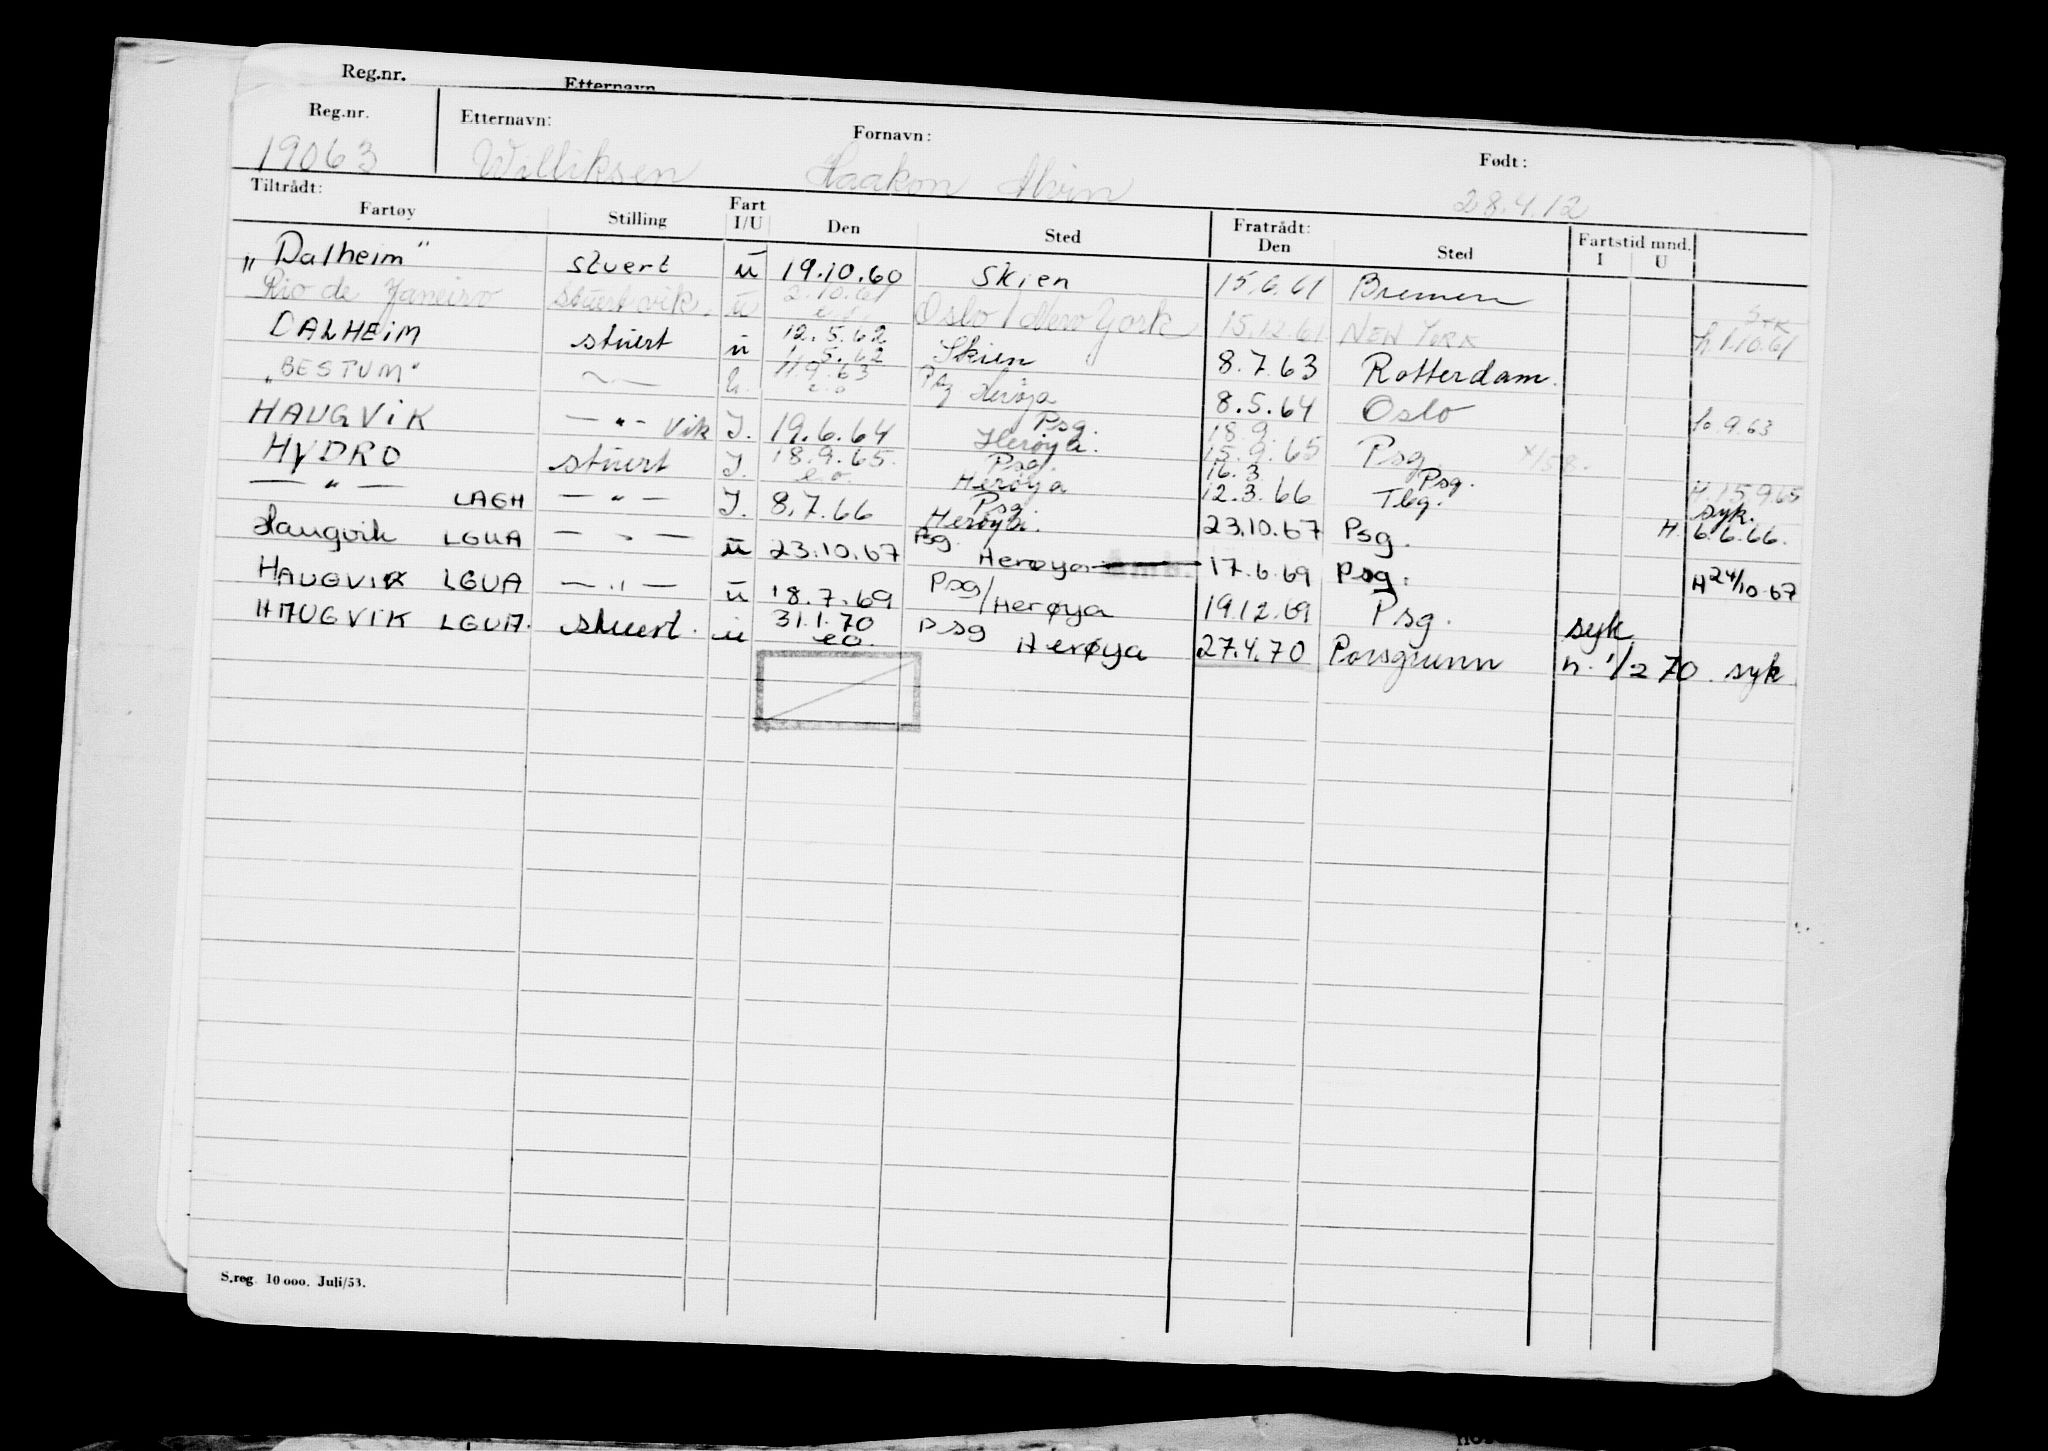 Reg.nr. Etternavn
Reg.nr. Etternavn: Fornavn: Født:
19063 Williksen Haakon Alvin 28.4.12
Tiltrådt: Fratrådt: Fartstid mnd.
Fartøy Stilling Fart I/U Den Sted Den Sted I U
"Dalheim" stuert u 19.10.60 Skien 15.6.61 Bremen
Rio de Janeiro stuert vik. u 2.10.61 e.o. Oslo / New York 15.12.61 NEW YORK syk h 1.10.61
DALHEIM stuert u 12.5.62 11.5.62 Skien 8.7.63 Rotterdam.
"BESTUM" 11.9.63 e.o Psg Herøya 8.5.64 Oslo h. 9.63
HAUGVIK — " — Vik I. 19.6.64 Psg. Herøya. 18.9. 15.9.65 Psg
HYDRO stuert I. 18.9.65. e.o. Psg. Herøya 16.3. 12.3.66 Psg. Tbg. H. 15.9.65
— " — LAGH — " — I. 8.7.66 Psg. Herøya. 23.10.67 Psg. syk. H. 6.6.66.
Haugvik LGUA — " — u 23.10.67 Psg. Herøya 17.6.69 Psg. H 24/10.67
HAUGVIK LGUA — " — u 18.7.69 Psg/Herøya 19.12.69 Psg. syk
HAUGVIK LGUA. stuert. u 31.1.70 e.o. Psg Herøya 27.4.70 Porsgrunn h. 1/2 70. syk
S.reg. 10 000. Juli/53.